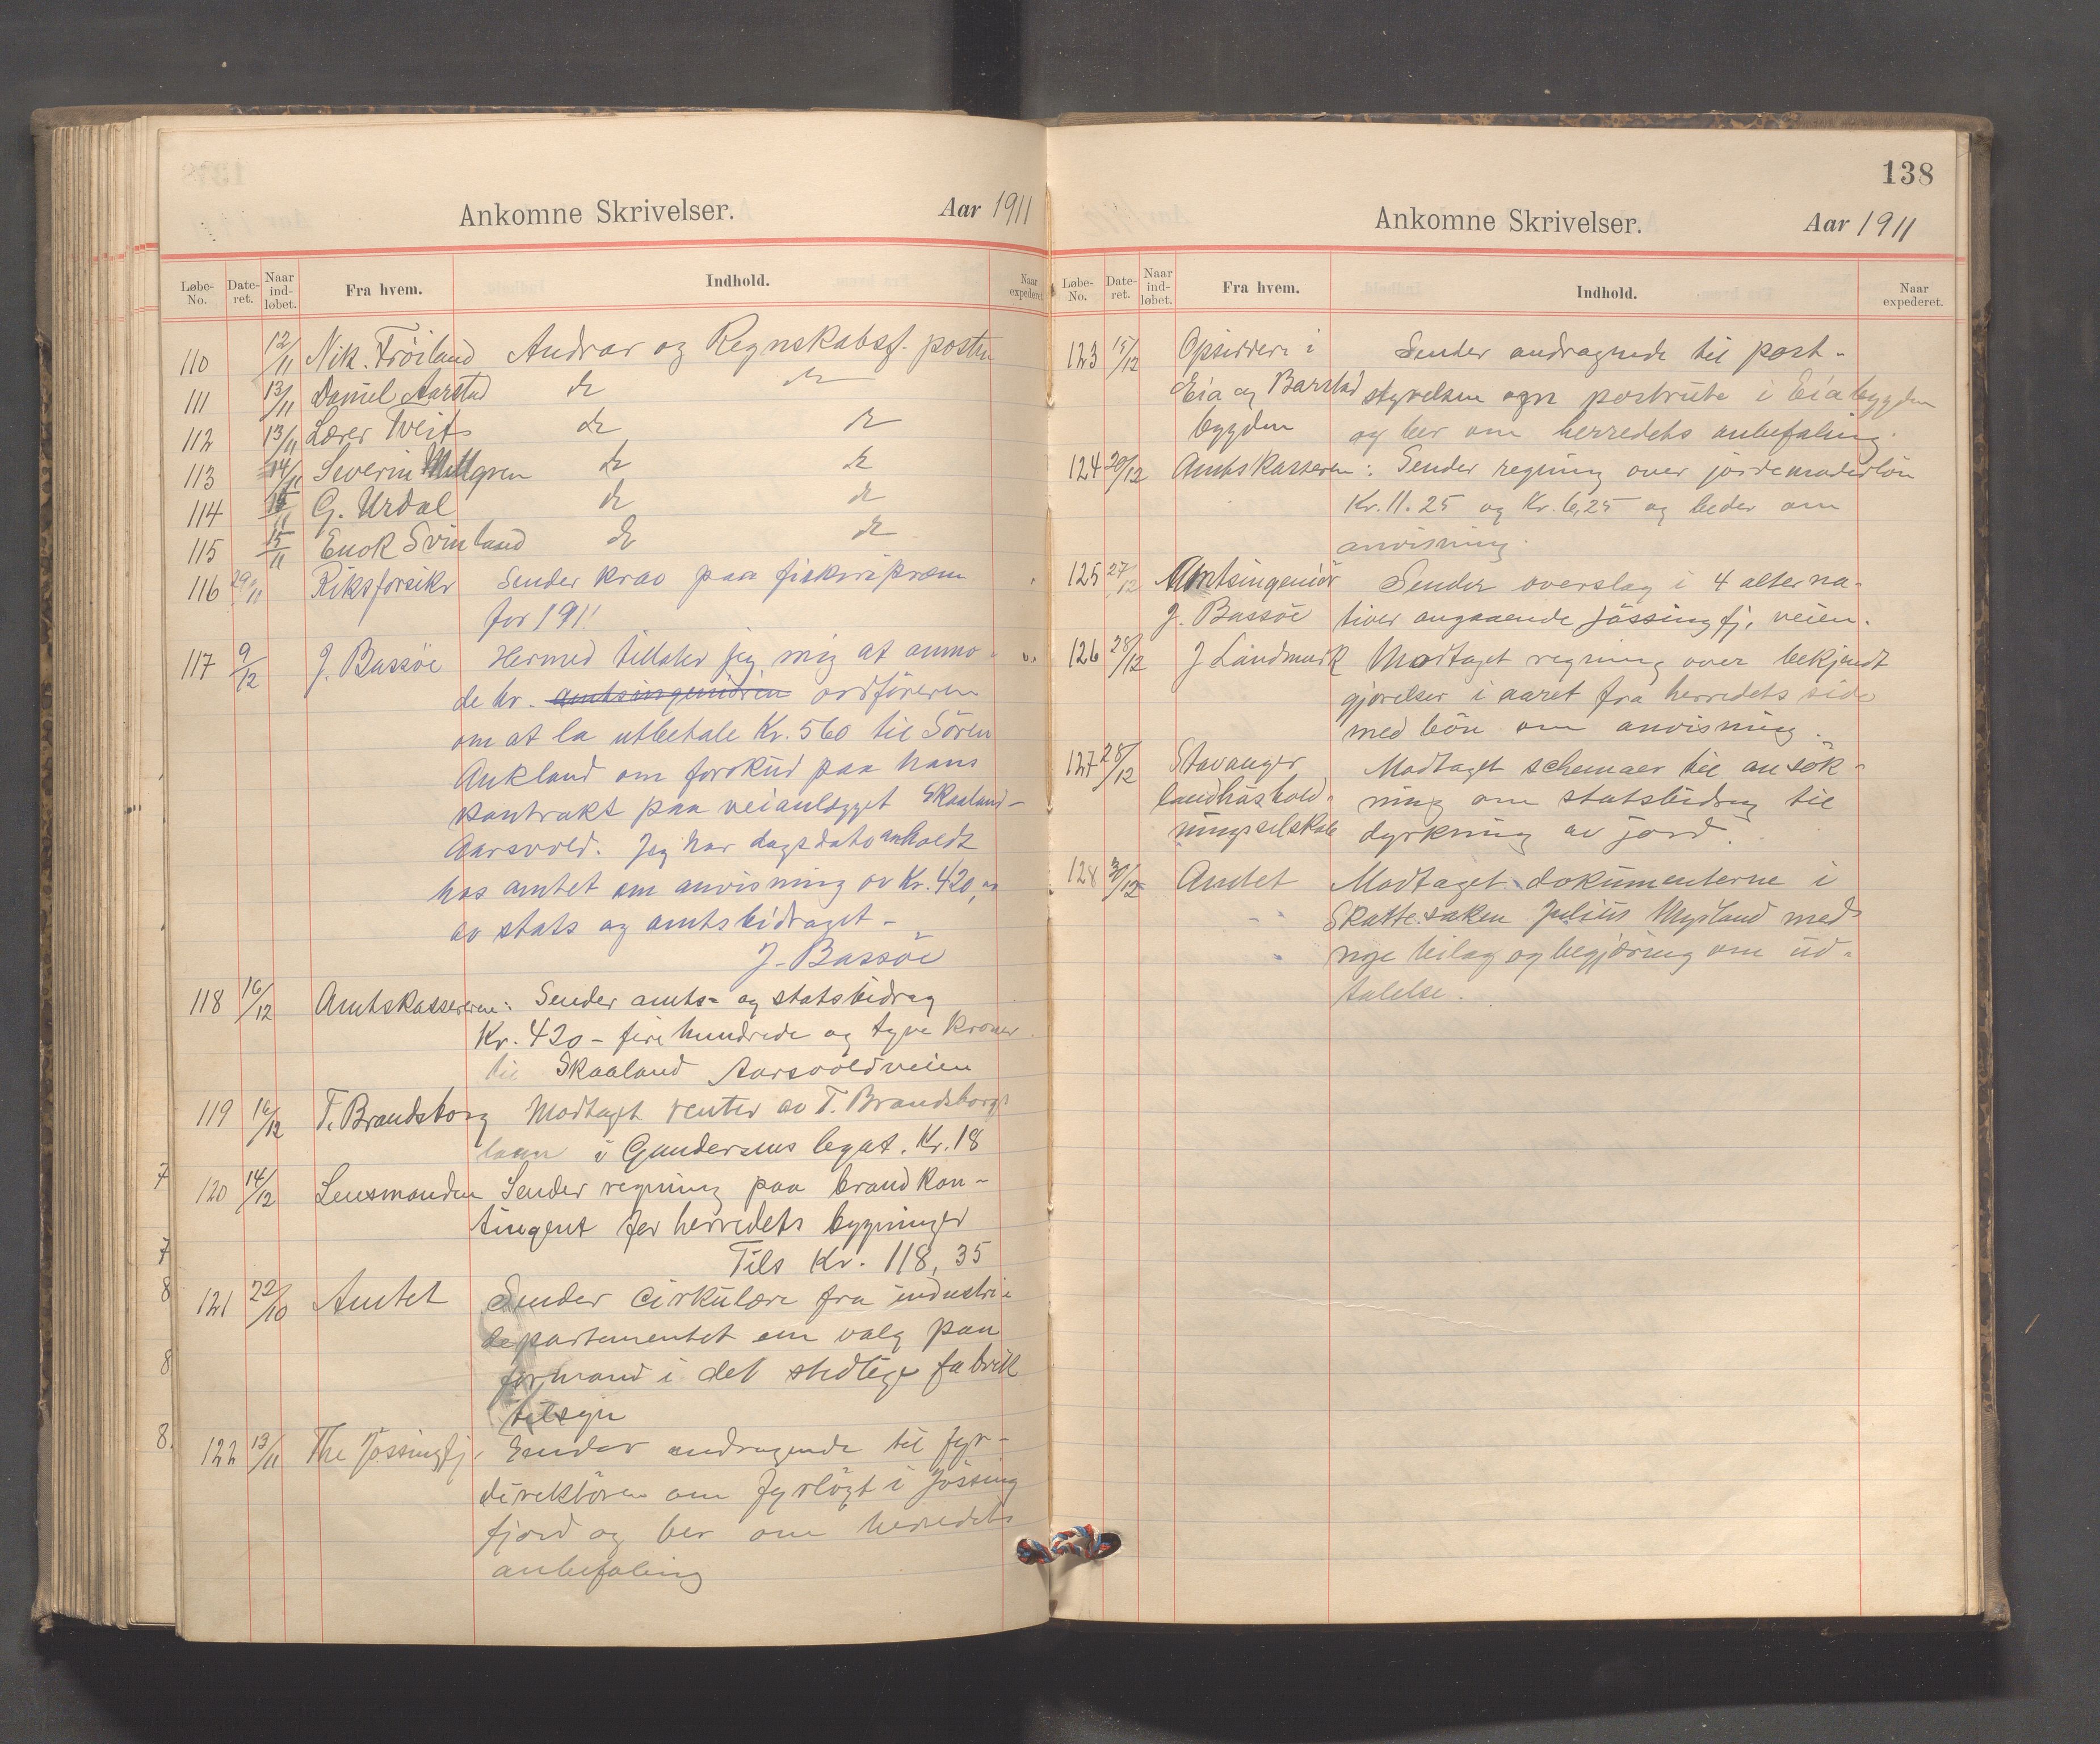 Ankomne Skrivelser. Aar 1911
Løbe-No. Date-ret. Naar ind-løbet. Fra hvem. Indhold. Naar expederet.
110 12/11 Nik. Fröiland Andrar og Regnskabsf. posten
111 13/11 Daniel Aarstad do do
112 13/11 Lærer Tveit do do
113 14/11 Severin do do
114 15/11 G. Urdal do do
115 15/11 Enok Svinland do do
116 29/11 Riksforsikr Sender krav paa fiskeripræm
for 1911
117 9/12 J. Bassöe Hermed tillater jeg mig at anmo-
de hr. amtsingeniören ordföreren
om at la utbetale Kr. 560 til Sören
Aukland om forskud paa hans
kontrakt paa veianlægget Skaaland-
Aarsvold. Jeg har dagsdato anholdt
hos amtet om anvisning av Kr. 420,-
av stats og amtsbidraget -
J. Bassöe
118 16/12 Amtskassereren: Sender amts- og statsbidrag
Kr. 420 - fire hundrede og tyve kroner
til Skaaland Aarsvoldveien
119 16/12 T. Brandsborg Modtaget renter av T. Brandsborgs
laan i Gundersens legat. Kr. 18
120 14/12 Lensmanden Sender regning paa brandkon-
tingent for herredets bygninger
Tils Kr. 118,35
121 22/10 Amtet Sender cirkulære fra industri-
departementet om valg paa
formand i det stedlige fabrik
tilsyn
122 13/11 The Jössingfj. Sender andragende til fyr-
direktören om fyrlögt i Jössing
fjord og ber om herredets
anbefaling
7
7
8
8
8
138
Ankomne Skrivelser. Aar 1911
Løbe-No. Date-ret. Naar ind-løbet. Fra hvem. Indhold. Naar expederet.
123 15/12 Opsiddere i Sender andragende til post-
Eia og Barstad styrelsen om postrute i Eiabygden
bygden og ber om herredets anbefaling.
124 20/12 Amtskasseren: Sender regning over jordemoderlön
Kr. 11.25 og Kr. 6,25 og beder om
anvisning.
125 27/12 Amtsingeniör Sender overslag i 4 alterna-
J. Bassöe tiver angaaende Jössingfj. veien.
126 28/12 J Landmark Modtaget regning over bekjendt
gjörelser i aaret fra herredets side
med bön om anvisning.
127 28/12 Stavanger Modtaget schemaer til ansök-
landhushold- ning om statsbidrag til
ningsselskab dyrkning av jord.
128 30/12 Amtet Modtaget dokumenterne i
Skattesaken Julius Mysland med
nye bilag og begjæring om ud-
talelse.